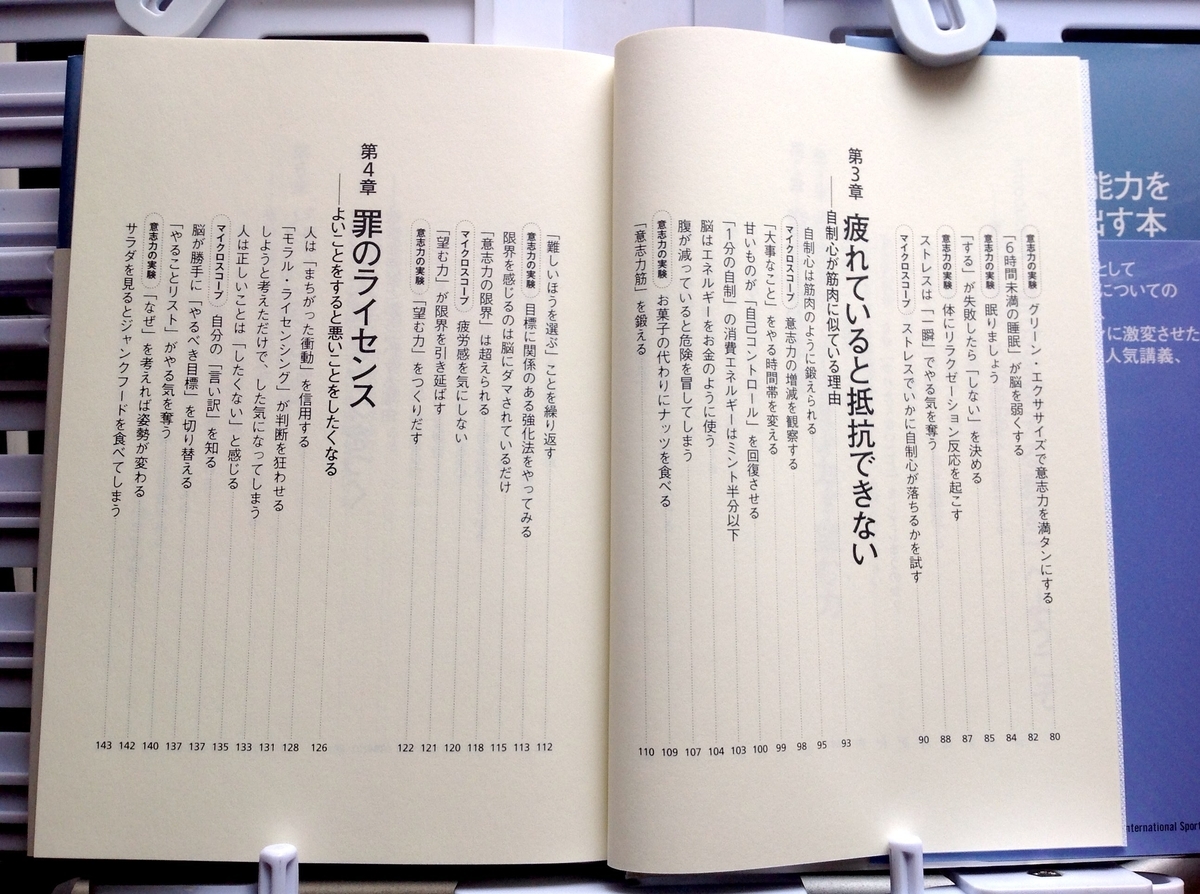 意志力の実験 グリーン・エクササイズで意志力を満タンにする 80
「6時間未満の睡眠」が脳を弱くする 82
意志力の実験 眠りましょう 84
「する」が失敗したら「しない」を決める 85
意志力の実験 体にリラクゼーション反応を起こす 87
ストレスは「一瞬」でやる気を奪う 88
マイクロスコープ ストレスでいかに自制心が落ちるかを試す 90
第3章 疲れていると抵抗できない
──自制心が筋肉に似ている理由 93
自制心は筋肉のように鍛えられる 95
マイクロスコープ 意志力の増減を観察する 98
「大事なこと」をやる時間帯を変える 99
甘いものが「自己コントロール」を回復させる 100
「1分の自制」の消費エネルギーはミント半分以下 103
脳はエネルギーをお金のように使う 104
腹が減っていると危険を冒してしまう 107
意志力の実験 お菓子の代わりにナッツを食べる 109
「意志力筋」を鍛える 110
「難しいほうを選ぶ」ことを繰り返す 112
意志力の実験 目標に関係のある強化法をやってみる 113
限界を感じるのは脳にダマされているだけ 115
「意志力の限界」は超えられる 118
マイクロスコープ 疲労感を気にしない 120
「望む力」が限界を引き延ばす 121
意志力の実験 「望む力」をつくりだす 122
第4章 罪のライセンス
──よいことをすると悪いことをしたくなる 126
人は「まちがった衝動」を信用する 128
「モラル・ライセンシング」が判断を狂わせる 131
しようと考えただけで、した気になってしまう 133
人は正しいことは「したくない」と感じる 135
マイクロスコープ 自分の「言い訳」を知る 137
脳が勝手に「やるべき目標」を切り替える 137
「やることリスト」がやる気を奪う 140
意志力の実験 「なぜ」を考えれば姿勢が変わる 142
サラダを見るとジャンクフードを食べてしまう 143
能力を
出す本
として
についての
に激変させた
人気講義、
nternational Sport